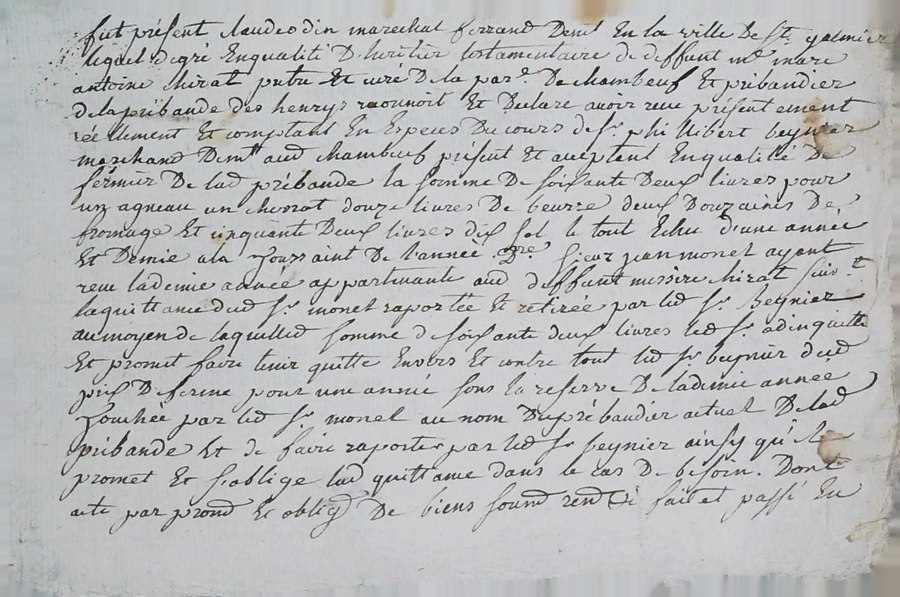 fut présent Claude odin marechal ferrand Demt En la ville De St. galmier
lequel degré Enqualité D'heritier testamentaire de deffunt mre mare
antoine chirat prttre Et curé De la parse De chambeuf Et prébandier
de la prébande des henrys reconnoit Et Declare avoir receu présentement
réellement Et comptant En Especes Du cours de Sr. philibert beynier
marchand Demtt aud chambeuf présent Et aceptant Enqualité De
fermier De lad prébande la somme De soissante Deux livres pour
un agneau un chevrat douze livres De beurre deux Douzaines De
fromage Et cinquante Deux livres dix sol le tout Echu d'une année
Et Demie a la Toussaint De l'année sieur jean monet ayant
receu lademie année appartenante aud deffunt missire chirat suivt
laquittance dud Sr. monet raportée Et retirée par led Sr. Beynier
au moyen de laquelled somme de soixante deux livres led Sr. odin quitte
Et promet faire tenir quitte Envers Et contre tout led Sr beynier dud
prix De ferme pour une année sous la reserve De lademie année
Touchée par led Sr. monet au nom Du prébandier actuel De lad
prébande Et de faire raporter par led Sr beynier ainsy qu'il le
promet Et s'oblige lad quittance dans le cas De besoin. Dont
acte par promd Et obligd De biens soumd rendt fait et passé En